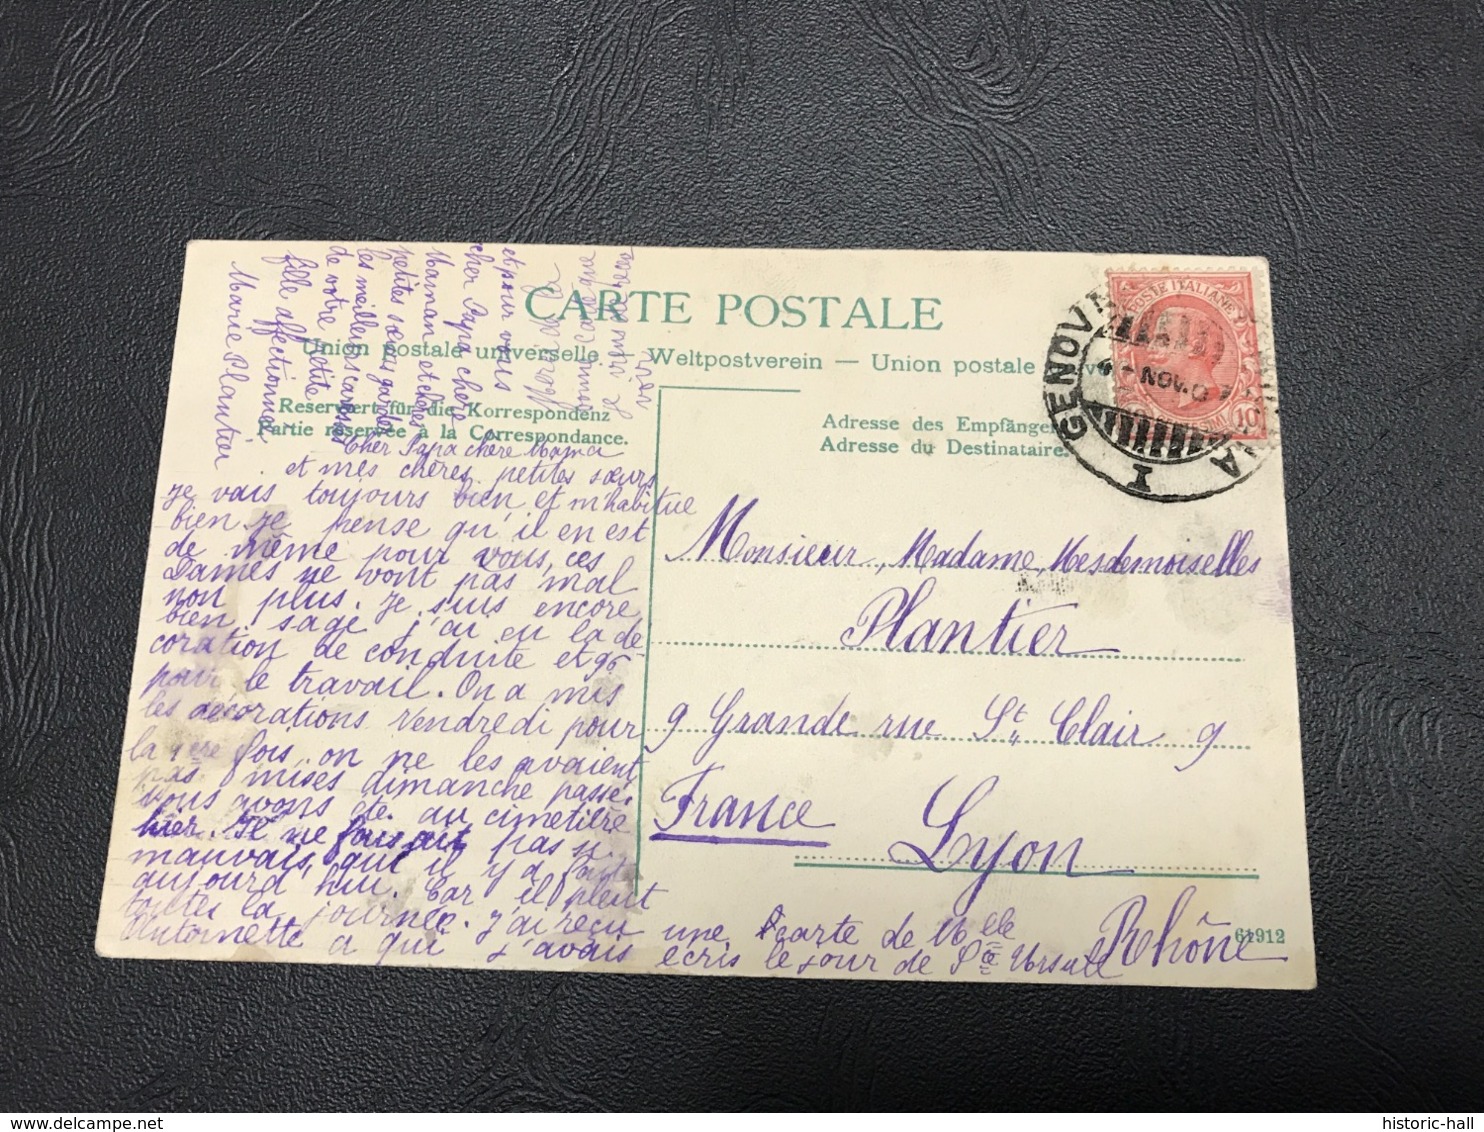 CARTE POSTALE
Union postale universelle. Weltpostverein — Union postale
Reservert für die Korrespondenz
Partie reservée à la Correspondance.
Adresse des Empfänge
Adresse du Destinataire.
POSTE ITALIANE
10
GENOVA
NOV.
I
Cher Papa chère Mama
et mes chères petites sœurs
je vais toujours bien et m'habitue
bien je pense qu'il en est
de même pour vous, ces
Dames ne vont pas mal
non plus. Je suis encore
bien sage j'ai eu la dé
coration de conduite et 96
pour le travail. On a mis
les décorations vendredi pour
la 1ère fois, on ne les avaient
pas mises dimanche passé.
Nous avons été au cimetière
hier. Il ne faisait pas si
mauvais qu'il y a fait
aujourd'hui. Car il pleut
toutes la journée. J'ai reçu une carte de Melle
Antoinette a qui j'avais écris le jour de Ste Ursule
je viens de recevoir
bonne carte que
et pour vous
cher Papa chère
Maman et chères
petites sœurs gardez
les meilleurs
de votre petite
fille affectionnée
Marie Plantier
Monsieur, Madame, Mesdemoiselles
Plantier
9 Grande rue St Clair 9
France Lyon
Rhône
61912
historic-hall